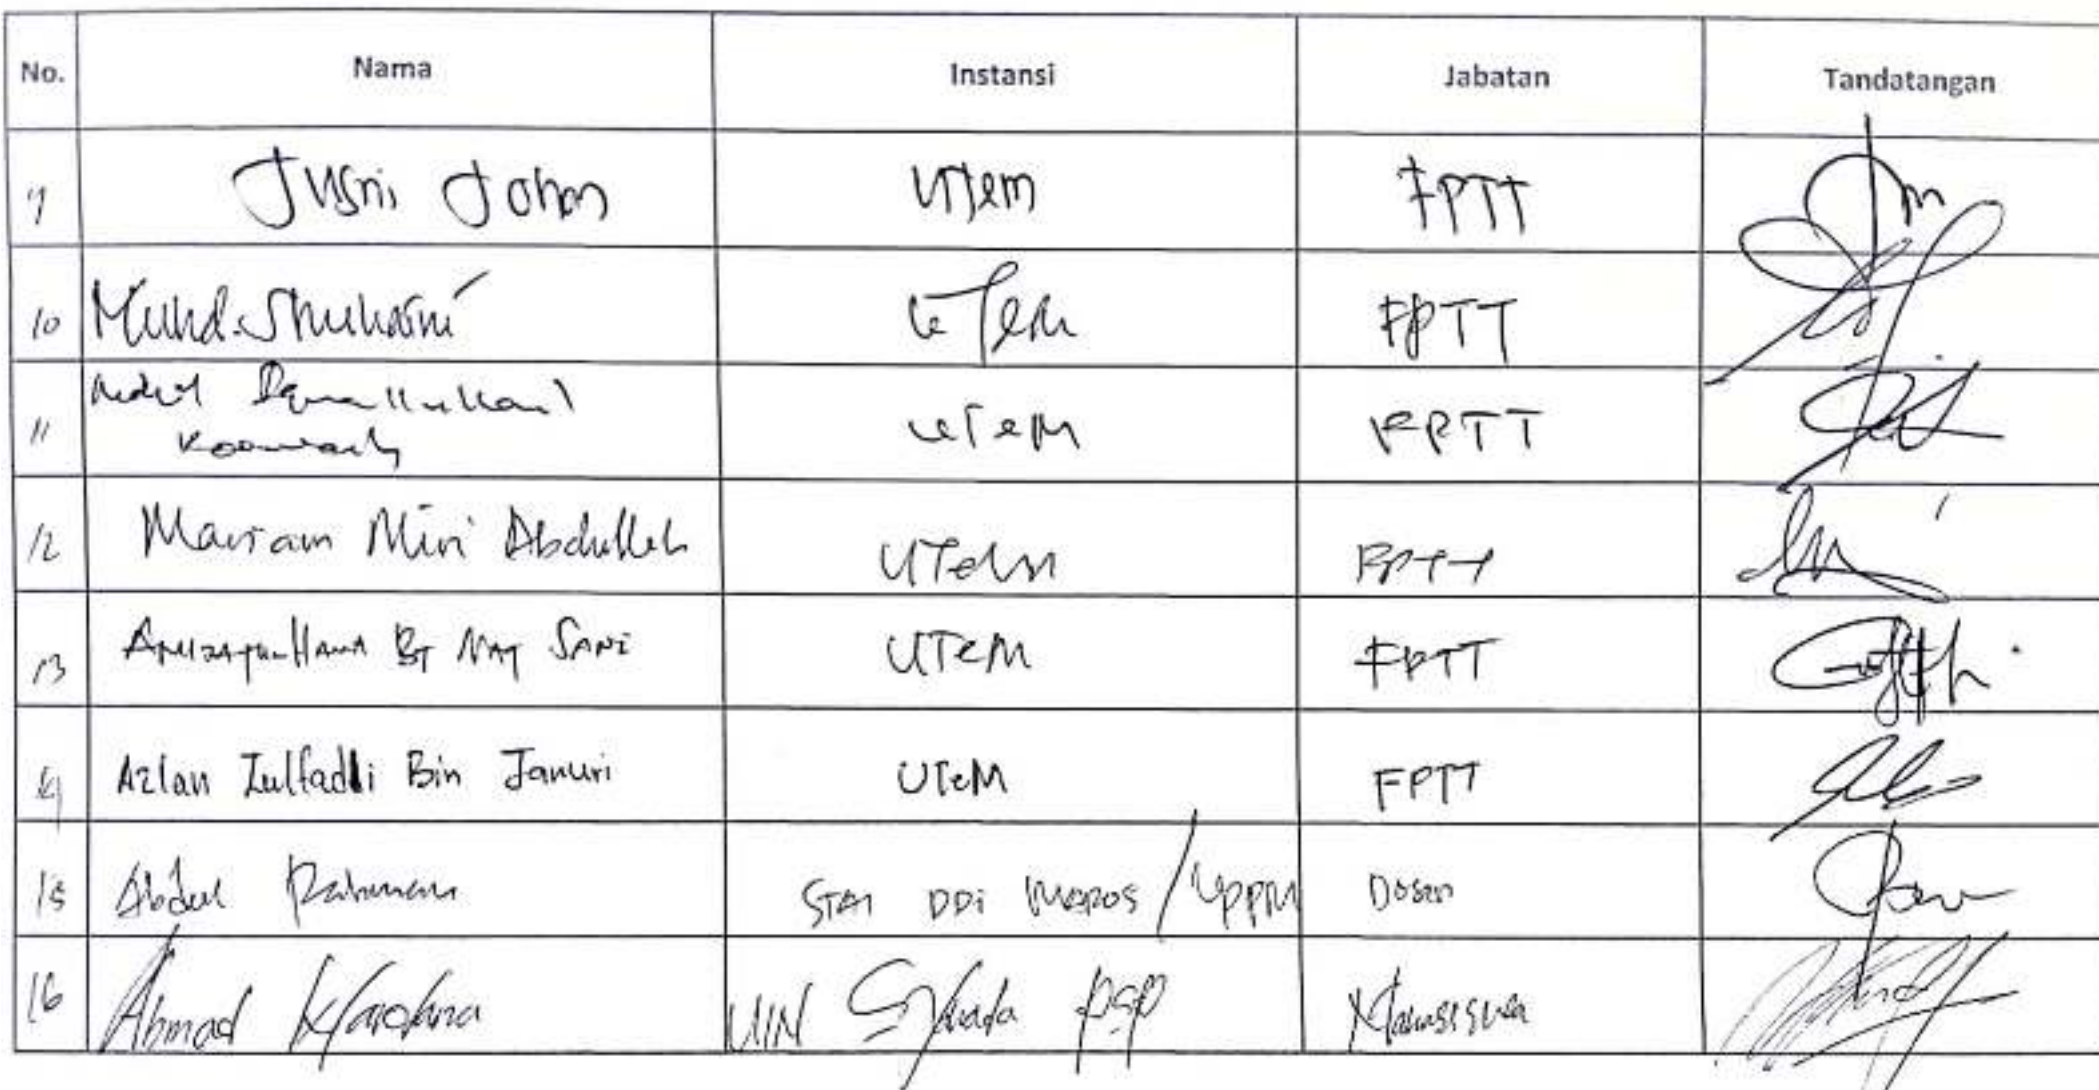 No. Nama Instansi Jabatan Tandatangan
9 Jusni Johan UTem FPTT
10 Muhd. Shuhaimi UTeM FPTT
11 UTeM FPTT
12 Mariam Miri Abdullah UTeM FPTT
13 Bt Mat Sani UTeM FPTT
14 Azlan Zulfadli Bin Januri UTeM FPTT
15 Abdul Rahman STAI DDI Maros / LPPM Dosen
16 Ahmad UIN Syahada PSP Mahasiswa